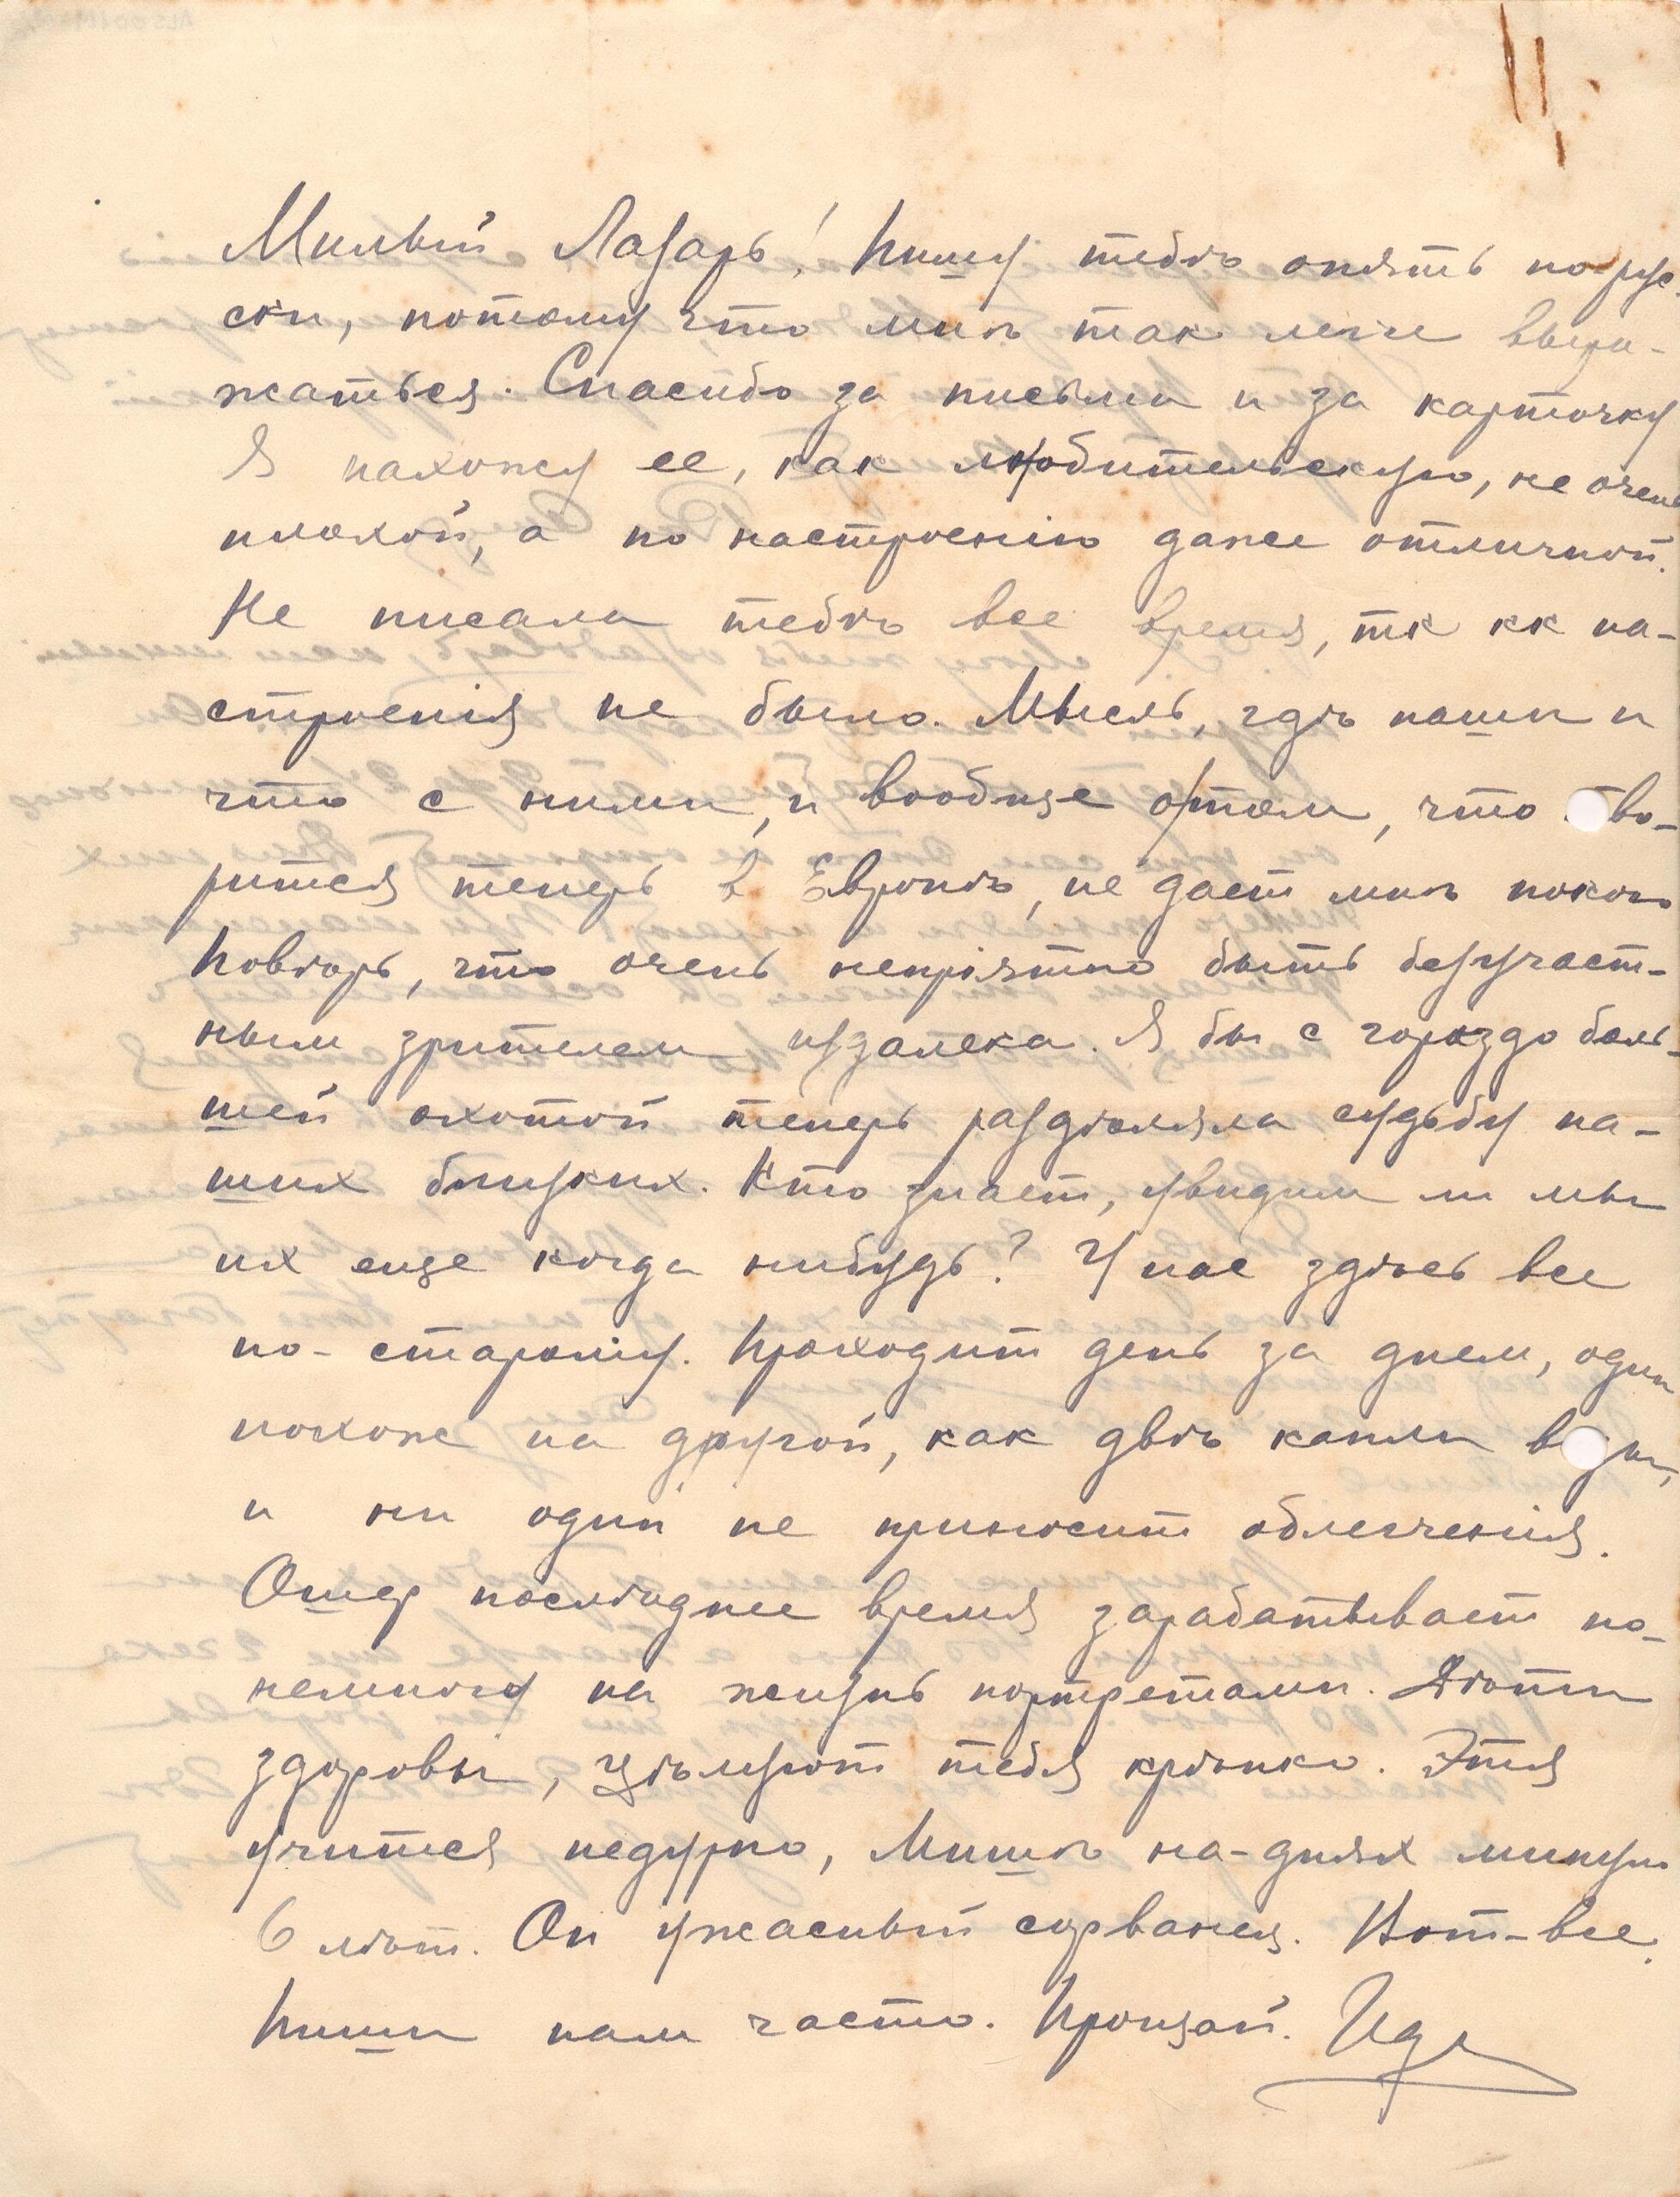 Милый Лазарь! Пишу тебѣ опять по-рус-
ски, потому что мнѣ так легче выра-
жаться. Спасибо за письма и за карточку
Я нахожу ее, как любительскую, не очень
плохой, а по настроенію даже отличной.
Не писала тебѣ все время, тк кк на-
строенія не было. Мысль, гдѣ наши и
что с ними, и вообще о том, что тво-
рится теперь в Европѣ, не дает мнѣ покою
Повѣрь, что очень непріятно быть безучаст-
ным зрителем издалека. Я бы с гораздо боль-
шей охотой теперь раздѣляла судьбу на-
ших близких. Кто знает, увидим ли мы
их еще когда нибудь? У нас здѣсь все
по-старому. Проходит день за днем, один
похож на другой, как двѣ капли воды,
и ни один не приносит облегченія.
Ошер послѣднее время зарабатывает по-
немногу на жизнь портретами. Дѣти
здоровы, цѣлуют тебя крѣпко. Этя
учится недурно, Мишѣ на-днях минуло
6 лѣт. Он ужасный сорванец. Вот-все.
Пиши нам часто. Прощай. Ида